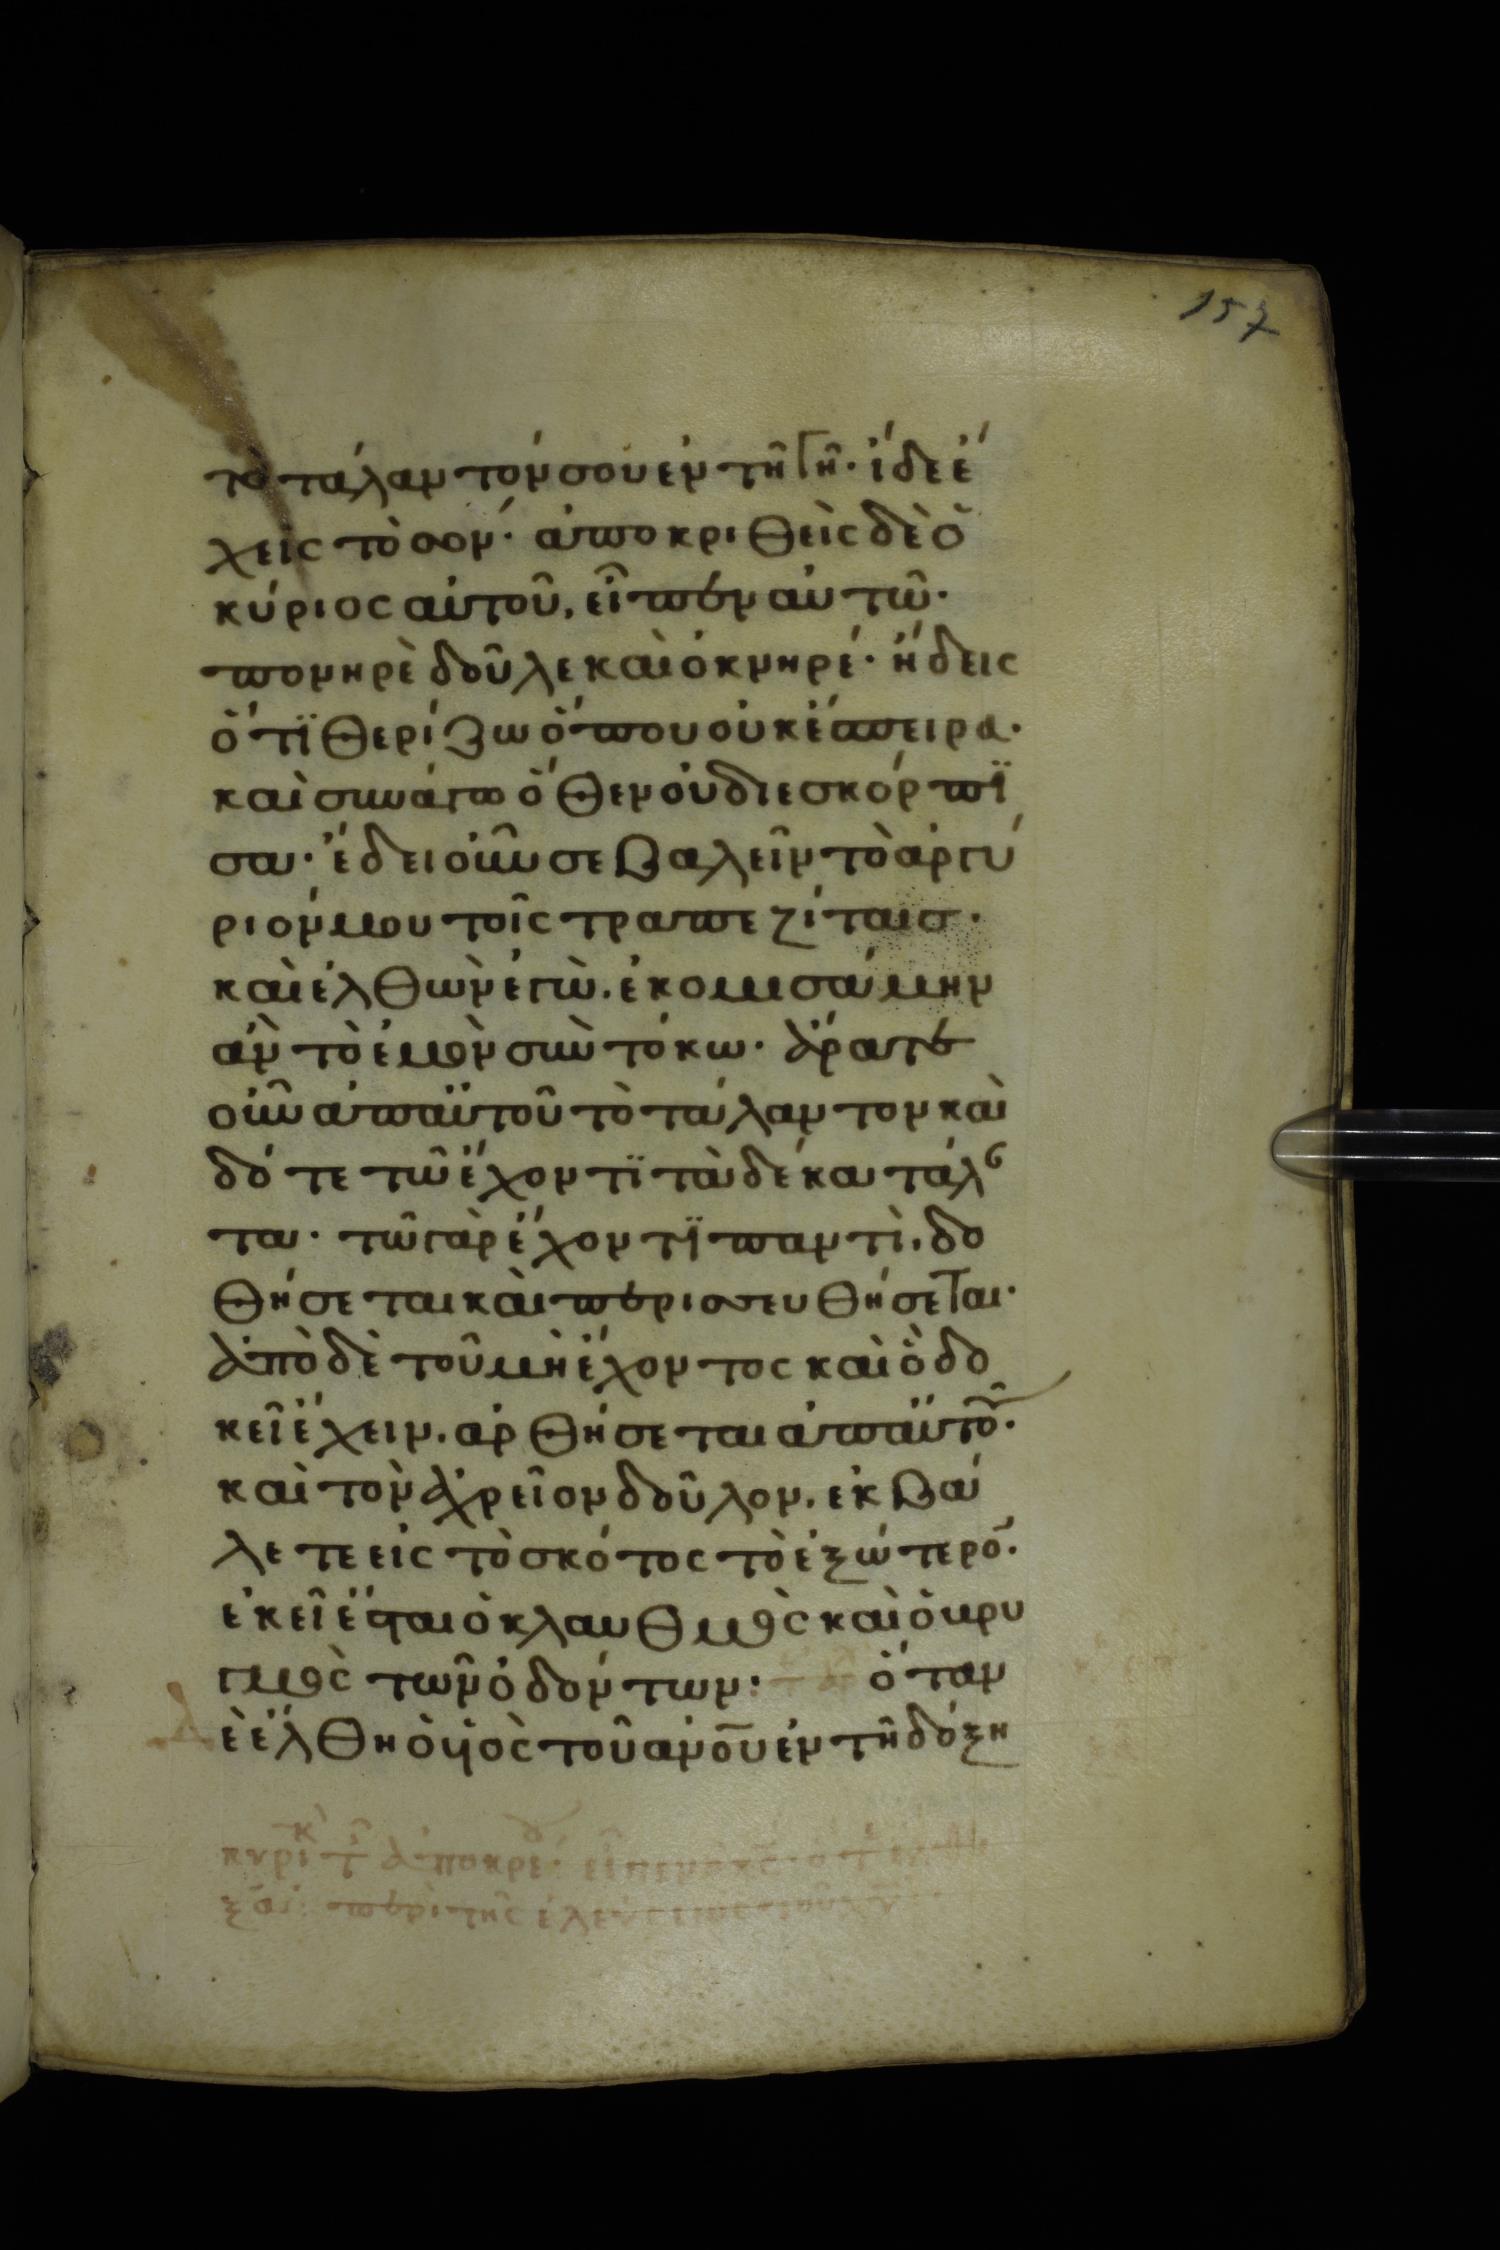 157
τὸ τάλαντόν σου ἐν τῆ γῆ· ἴδε ἔ
χεις τὸ σόν· ἀποκριθεὶς δὲ ὁ
κύριος αὐτοῦ, εἶπεν αὐτῶ·
πονηρὲ δοῦλε καὶ ὀκνηρέ· ἤδεις
ὅτϊ θερίζω ὅπου οὐκ ἔσπειρα·
καὶ συνάγω ὅθεν οὐ διεσκόρπϊ
σα· ἔδει οὖν σε βαλεῖν τὸ ἀργύ
ριόν μου τοῖς τραπεζίταισ·
καὶ ἐλθὼν ἐγὼ, ἐκομισάμην
ἂν τὸ ἐμὸν σὺν τόκω· ἄρατε
οὖν ἀπαὐτοῦ τὸ τάλαντον καὶ
δότε τῶ ἔχοντϊ τὰ δέκα τάλ
τα· τῶ γὰρ ἔχοντϊ παντὶ, δο
θήσεται καὶ περισσευθήσεται·
ἀπὸ δὲ τοῦ μὴ ἔχοντος καὶ ὃ δο
κεῖ ἔχειν, ἀρθήσεται ἀπαὐτοῦ·
καὶ τὸν ἀχρεῖον δοῦλον, ἐκβά
λετε εἰς τὸ σκότος τὸ ἐξώτερο̄·
ἐκεῖ ἔσται ὁ κλαυθμὸς καὶ ὁ βρυ
γμὸς τῶν ὀδόντων: ὅταν
ἐ ἔλθη ὁ υἱὸς τοῦ ἀνο̄υ ἐν τῆ δόξη